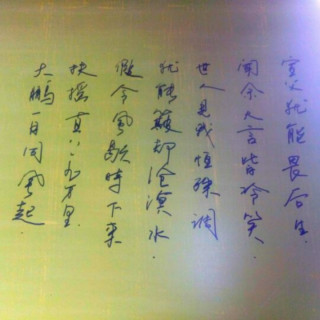 大鹏一日同风起.
扶摇直上九万里.
假令风歇时下来
犹能簸却沧溟水.
世人见我恒殊调
闻余大言皆冷笑.
宣父犹能畏后生.